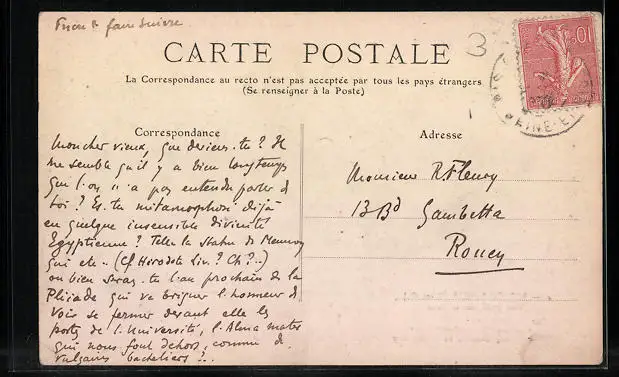 Prière de faire suivre
3
CARTE POSTALE
La Correspondance au recto n'est pas acceptée par tous les pays étrangers
(Se renseigner à la Poste)
Correspondance
Mon cher vieux, que deviens-tu ? Il
me semble qu'il y a bien longtemps
que l'on n'a pas entendu parler de
toi ? Es-tu métamorphosé déjà
en quelque insensible divinité
Egyptienne ? Telle la statue de Memnon
qui etc.. (Cf Hérodote Liv. ? Ch ?..)
ou bien serais-tu l'an prochain de la
Pléiade qui va briguer l'honneur de
voir se fermer devant elle les
portes de l'Université, l'Alma mater
qui nous fout dehors, comme de
vulgaires bacheliers ?..
Adresse
Monsieur R. Fleury
13 Bd Gambetta
Rouen
10
SEINE-ET